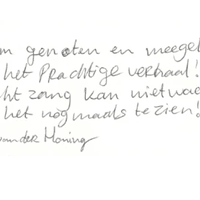 genoten en
het Prachtige verhaal!
zang kan niet
het nogmaals te zien!
van der Honing